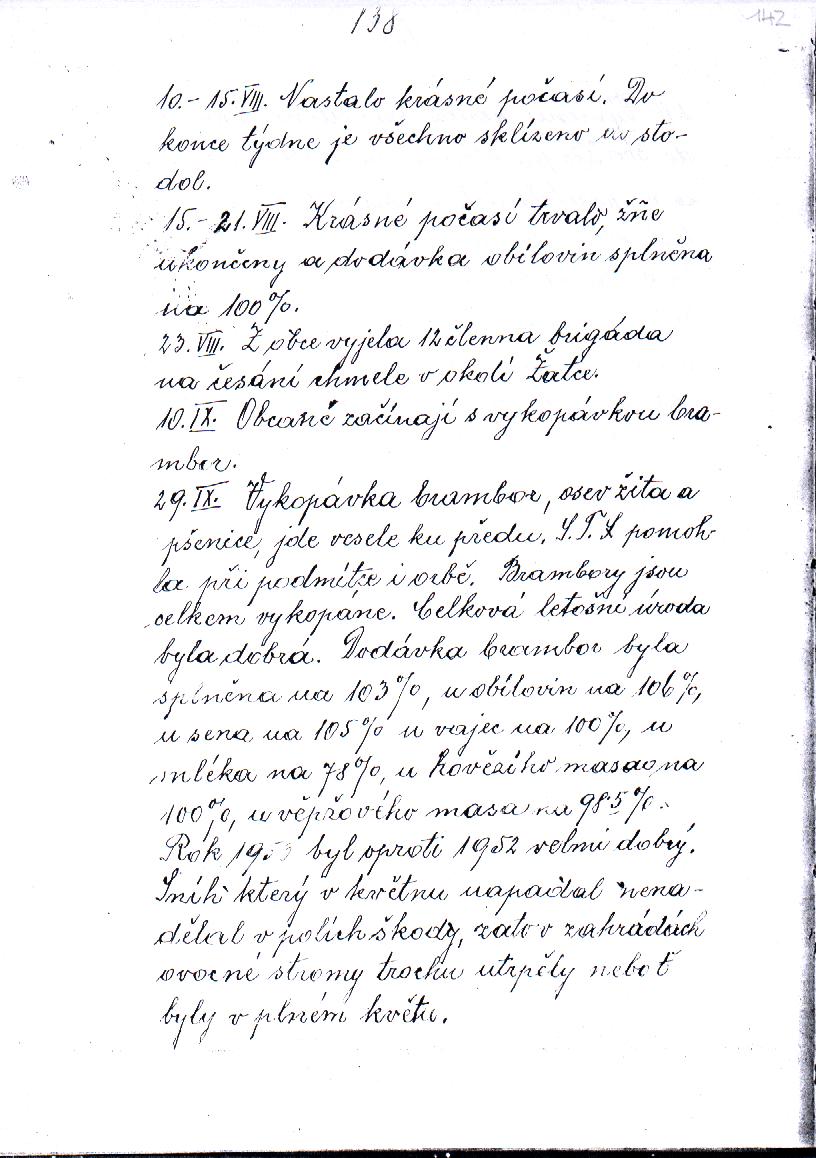 138
142
10.- 15. VIII. Nastalo krásné počasí. Do
konce týdne je všechno sklízeno do sto-
dol.
15.- 21. VIII. Krásné počasí trvalo, žně
ukončeny a dodávka obilovin splněna
na 100%.
23. VIII. Z obce vyjela 12 členna brigáda
na česání chmele v okolí Žatce.
10. IX. Občané začínají s vykopávkou bra-
mbor.
29. IX. Vykopávka brambor, osev žita a
pšenice, jde vesele ku předu. S.T.S pomoh-
la při podmítce i orbě. Brambory jsou
celkem vykopáne. Celková letošní úroda
byla dobrá. Dodávka brambor byla
splněna na 103%, u obilovin na 106%,
u sena na 105% u vajec na 100%, u
mléka na 78%, u hovězího masa na
100%, u věpřového masa na 98.5%.
Rok 1953 byl oproti 1952 velmi dobrý.
Sníh který v květnu napadal nena-
dělal v polích škody, zato v zahrádách
ovocné stromy trochu utrpěly neboť
byly v plném květu.